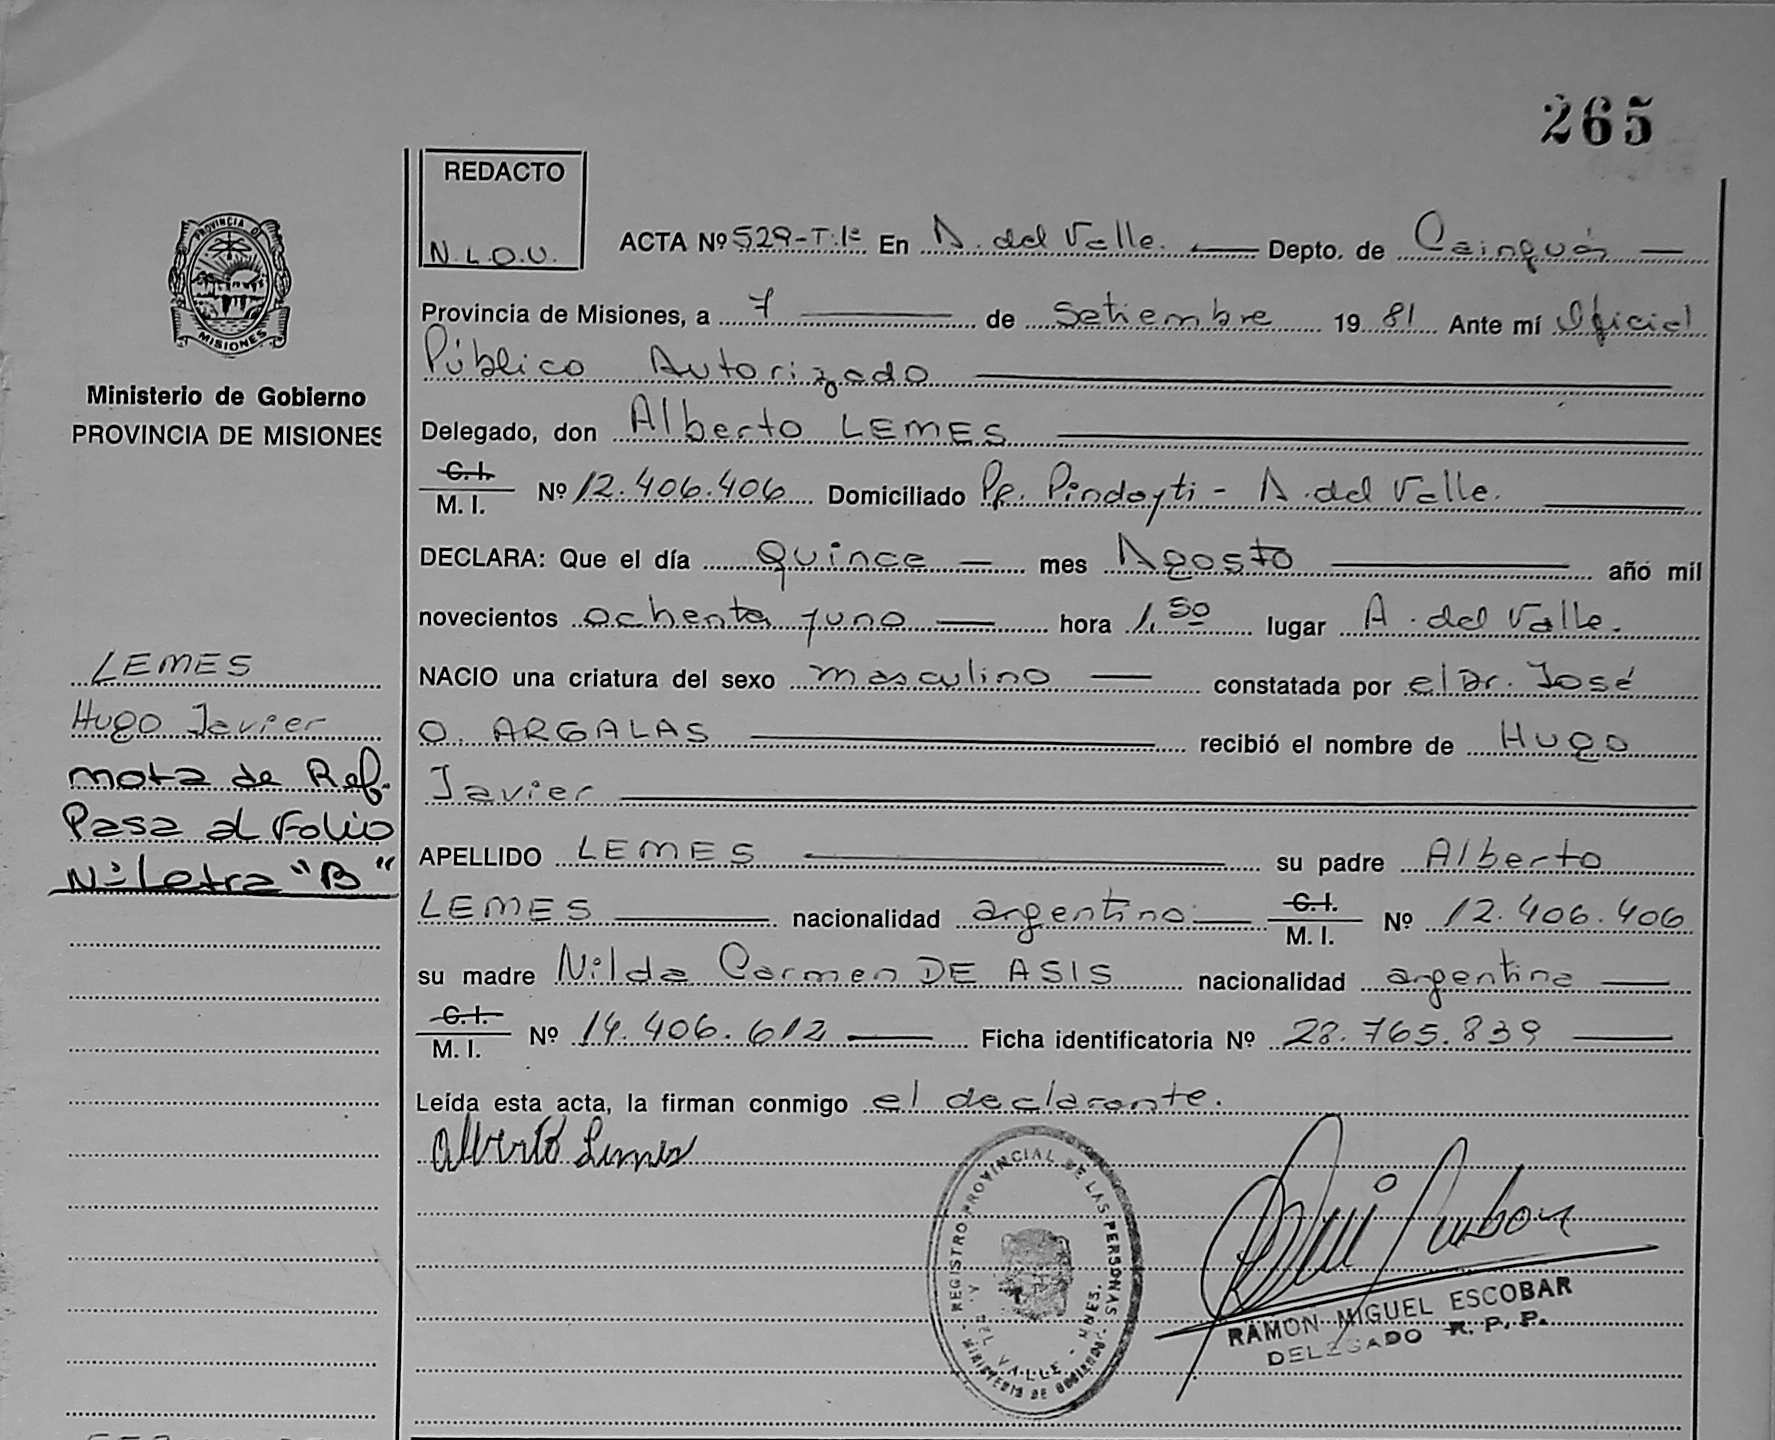 265
REDACTO
N.L.O.U.
ACTA Nº 529-T.1º En A. del Valle. Depto. de Cainguás
PROVINCIA DE MISIONES
Provincia de Misiones, a 7 de Setiembre 19 81 Ante mí Oficial
Público Autorizado
Ministerio de Gobierno
PROVINCIA DE MISIONES
Delegado, don Alberto LEMES
C.I. M. I. Nº 12.406.406 Domiciliado Pje. Pindayti - A. del Valle.
DECLARA: Que el día quince mes Agosto año mil
novecientos ochenta y uno hora 1,50 lugar A. del Valle.
NACIO una criatura del sexo masculino constatada por el Dr. José
O. ARGALAS recibió el nombre de Hugo
Javier
APELLIDO LEMES su padre Alberto
LEMES nacionalidad argentino C.I. M. I. Nº 12.406.406
su madre Nilda Carmen DE ASIS nacionalidad argentina
C.I. M. I. Nº 14.406.612 Ficha identificatoria Nº 28.765.839
Leída esta acta, la firman conmigo el declarante.
Alberto Lemes
LEMES
Hugo Javier
nota de Ref.
Pasa al Folio
Nº Letra "B"
REGISTRO PROVINCIAL DE LAS PERSONAS
DEL VALLE - MNES.
MINISTERIO DE GOBIERNO
RAMON MIGUEL ESCOBAR
DELEGADO R. P. P.